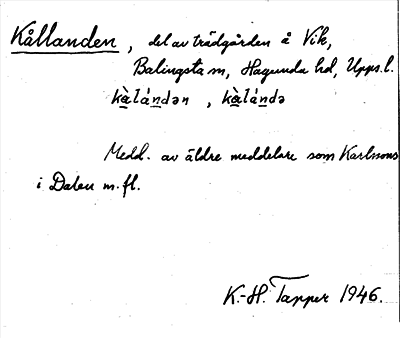 Kållanden, del av trädgården å Vik,
Balingsta sn, Hagunda hd, Upps. l.
kàlándən, kàlándə
Medd. av äldre meddelare som Karlssons
i Dalen m. fl.
K.-H. Tapper 1946.